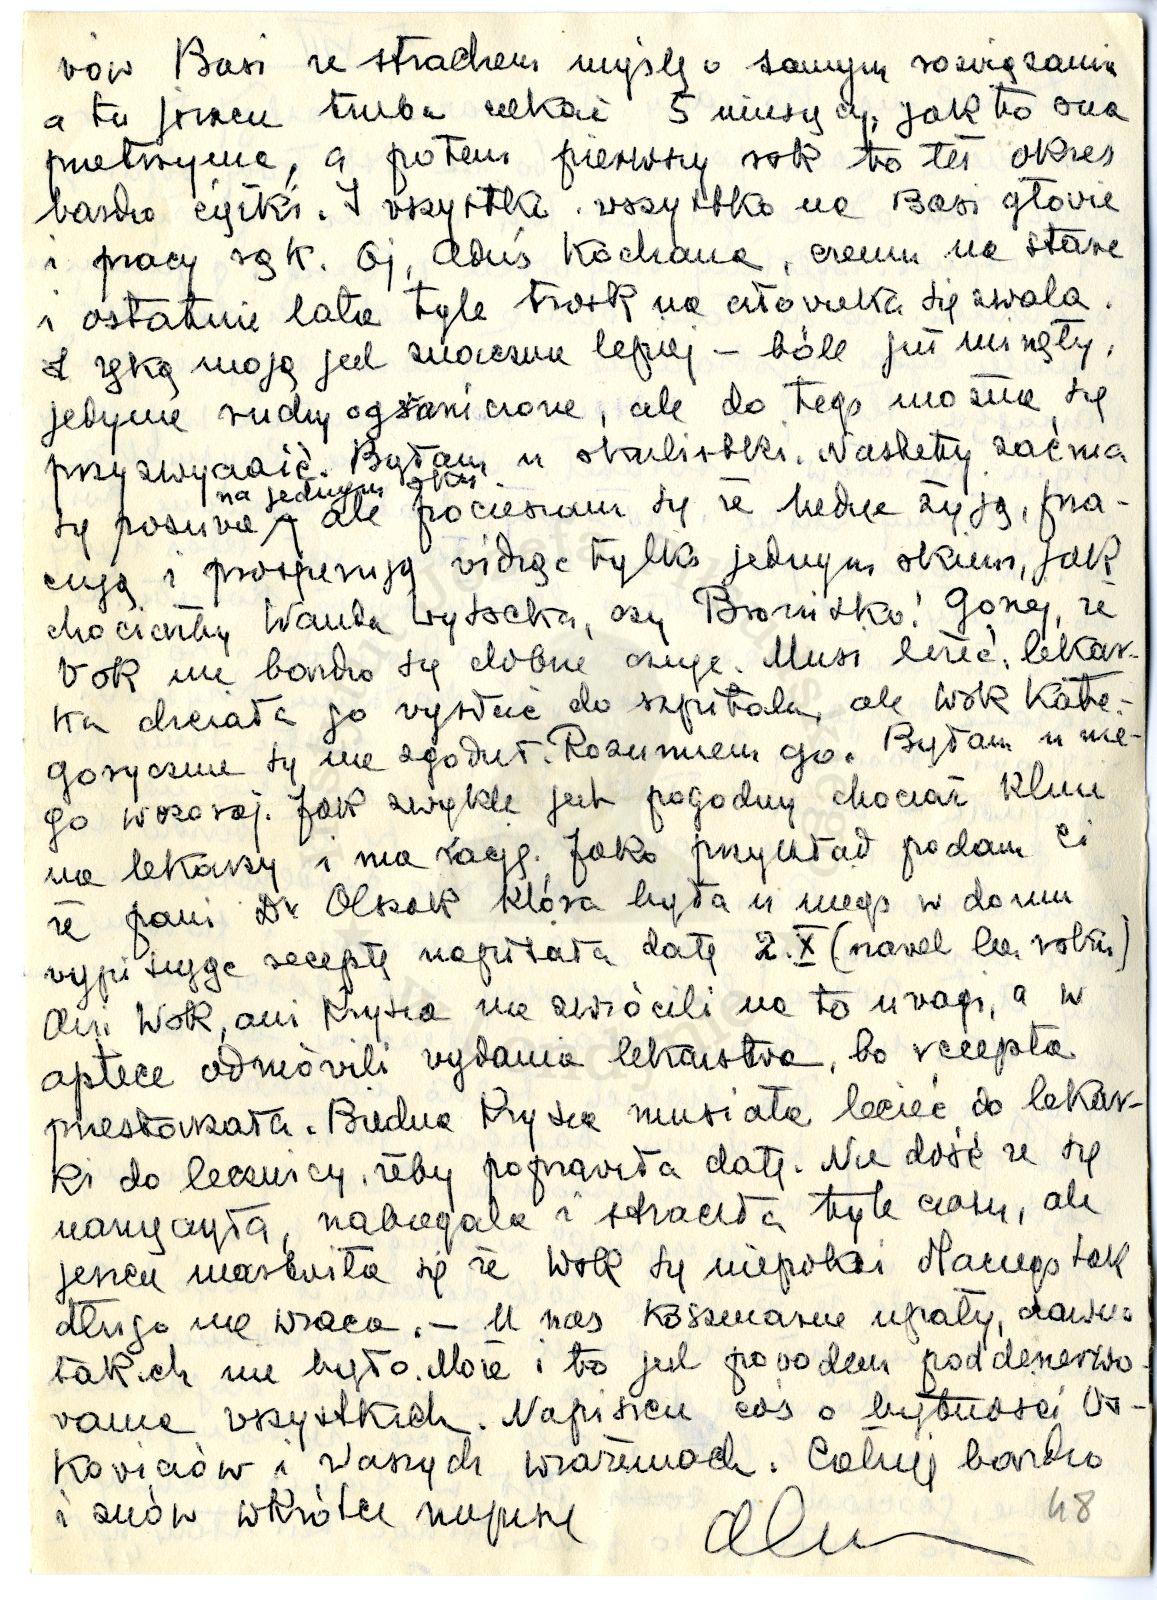 rów Basi ze strachem myślę o samym rozwiązaniu
a tu jeszcze trzeba czekać 5 miesięcy, jak to ona
przetrzyma, a potem pierwszy rok to też okres
bardzo ciężki. I wszystko, wszystko na Basi głowie
i pracy rąk. Oj, Aduś Kochana, czemu na stare
i ostatnie lata tyle trosk na człowieka się zwala.
Z ręką moją jest znacznie lepiej – bóle już minęły,
jedynie ruchy ograniczone, ale do tego można się
przyzwyczaić. Byłam u okulistki. Niestety zaćma
na jednym oku
się posuwa, ale pocieszam się że ludzie żyją, pra-
cują i prosperują widząc tylko jednym okiem, jak
chociażby Wanda Wysocka, czy Bronisko! Gorzej, że
Wok nie bardzo się dobrze czuje. Musi leżeć, lekar-
ka chciała go wysłać do szpitala, ale Wok kate-
gorycznie się nie zgodził. Rozumiem go. Byłam u nie-
go wczoraj. Jak zwykle jest pogodny chociaż klnie
na lekarzy i ma rację. Jako przykład podam Ci
że pani Dr Olszok która była u niego w domu
wypisując receptę napisała datę 2.X (nawet bez roku)
Ani Wok, ani Krysia nie zwrócili na to uwagi, a w
aptece odmówili wydania lekarstwa, bo recepta
przestarzała. Biedna Krysia musiała lecieć do lekar-
ki do lecznicy, żeby poprawiła datę. Nie dość że się
namęczyła, nabiegała i straciła tyle czasu, ale
jeszcze martwiła się że Wok się niepokoi dlaczego tak
długo nie wraca. – U nas koszmarne upały, dawno
takich nie było. Może i to jest powodem poddenerwo-
wania wszystkich. Napiszcie coś o bytności Wo-
kowiczów i Waszych wrażeniach. Całuję bardzo
i znów wkrótce napiszę
48